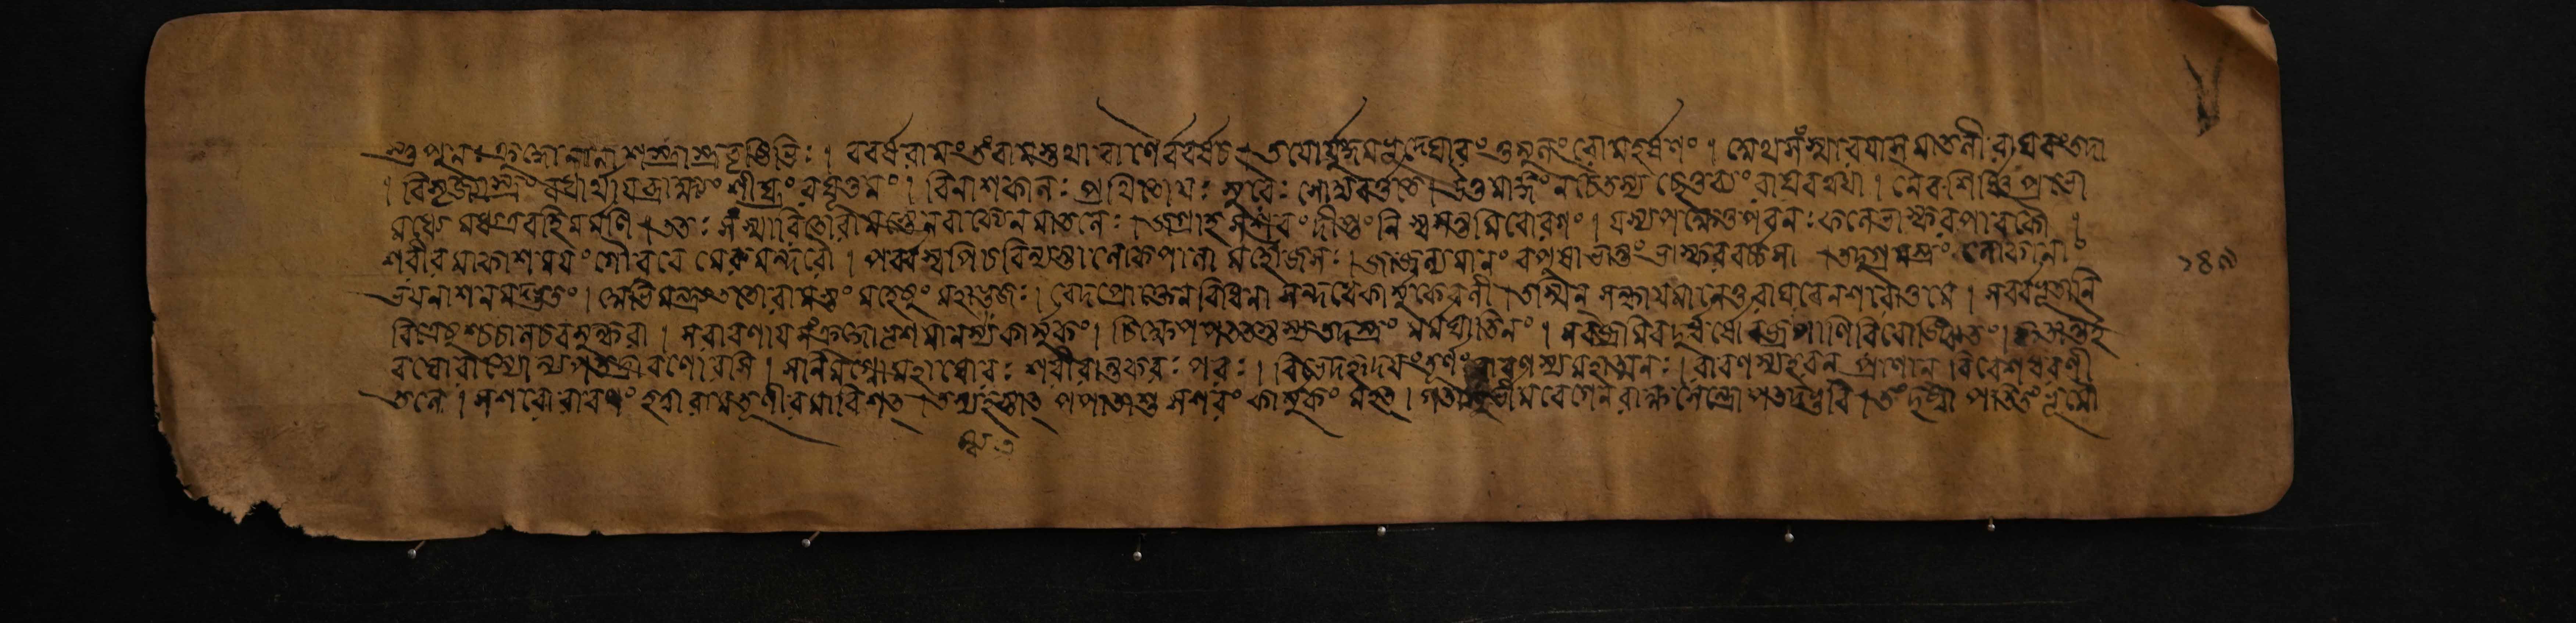 স্তু পুনঃ ক্রুদ্ধো নানাশস্ত্রাস্ত্রবৃষ্টিভিঃ। ববর্ষ রামং তং রামস্তথা বাণৈর্ববর্ষ চ। তয়োর্যুদ্ধমভূদ্ঘোরং তুমুলং রোমহর্ষণং। অথ সংস্মারয়ামাস মাতলী রাঘবং তদা
। বিসৃজাস্ত্রং বধায়াস্য ব্রাহ্মং শীঘ্রং রঘূত্তম। বিনাশকালঃ প্রথিতো যঃ সুরৈঃ সোদ্য বর্ত্ততে। উত্তমাঙ্গং ন চৈতস্য ছেত্তব্যং রাঘব ত্বয়া। নৈব শীর্ষ্ণি প্রভো
বধ্যো বধ্য এব হি মর্মণি। ততঃ সংস্মারিতো রামস্তেন বাক্যেন মাতলেঃ। জগ্রাহ স শরং দীপ্তং নিশ্বসন্তমিবোরগং। যস্য পার্শ্বে তু পবনঃ ফলে ভাস্করপাবকৌ।
শরীরমাকাশময়ং গৌরবে মেরুমন্দরৌ। পর্বস্বপি চ বিন্যস্তা লোকপালা মহৌজসঃ। জাজ্বল্যমানং বপুষা ভান্তং ভাস্করবর্চসা। তমুগ্রমস্ত্রং লোকানাং
ভয়নাশনমদ্ভুতং। অভিমন্ত্র্য ততো রামস্তং মহেষুং মহাভুজঃ। বেদপ্রোক্তেন বিধিনা সন্দধে কার্মুকে বলী। তস্মিন্ সন্ধীয়মানে তু রাঘবেন শরোত্তমে। সর্বভূতানি
বিত্রেসুশ্চচাল চ বসুন্ধরা। স রাবণায় সংক্রুদ্ধো ভৃশমানম্য কার্মুকং। চিক্ষেপ পরমায়ত্তস্তমস্ত্রং মর্মঘাতিনং। স বজ্র ইব দুর্ধর্ষো বজ্রপাণি কৃতান্ত ই
ব ঘোরাস্যো ন্যপতদ্রাবণোরসি। স নিমগ্নো মহাঘোরঃ শরীরান্তকরঃ পরঃ। বিভেদ হৃদয়ং তূর্ণং রাবণস্য মহাত্মনঃ। রাবণস্যাহরৎ প্রাণান্ বিবেশ ধরণী
তলে। স শরো রাবণং হত্বা রামতূণীরমাবিশৎ। তস্য হস্তাৎ পপাতাশু সশরং কার্মুকং মহৎ। গতাসুর্ভ্রমিবেগেন রাক্ষসেন্দ্রোপতদ্ভুবি। তং দৃষ্ট্বা পতিতং ভূমৌ
১৪৯